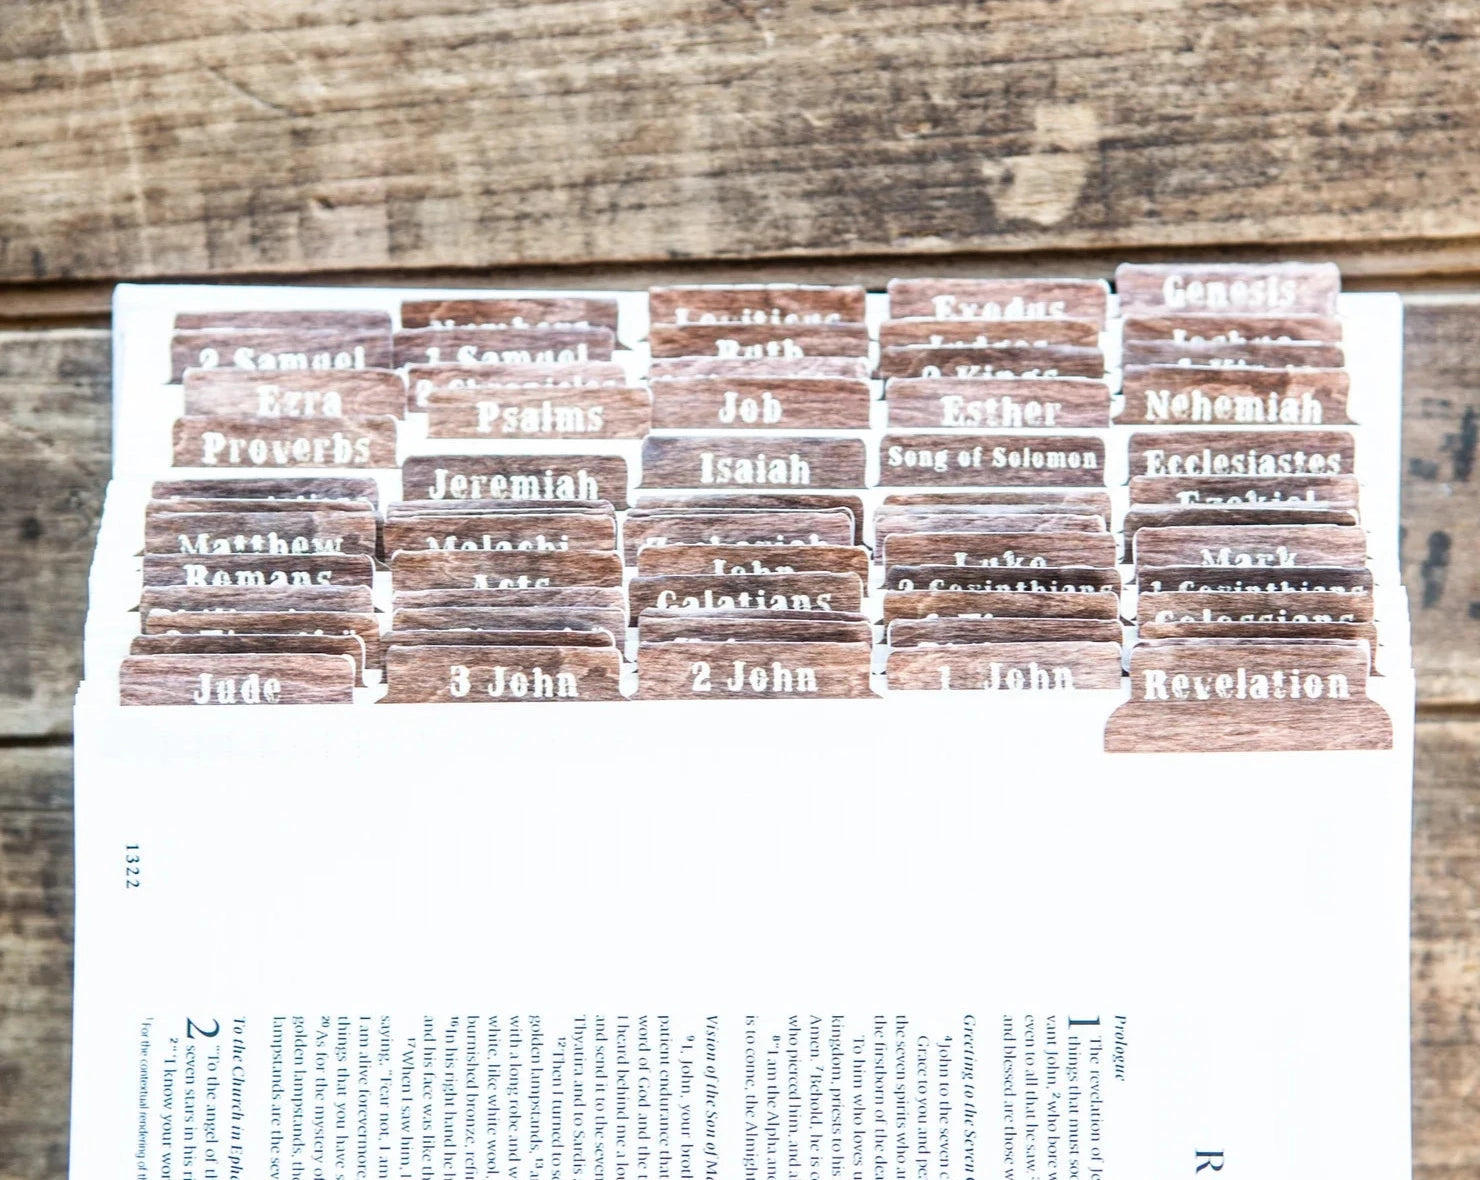 Genesis
Exodus
Leviticus
Numbers
Joshua
Judges
Ruth
1 Samuel
2 Samuel
2 Kings
2 Chronicles
Ezra
Nehemiah
Esther
Job
Psalms
Proverbs
Ecclesiastes
Song of Solomon
Isaiah
Jeremiah
Ezekiel
Zechariah
Malachi
Matthew
Mark
Luke
John
Acts
Romans
1 Corinthians
2 Corinthians
Galatians
Colossians
1 John
2 John
3 John
Jude
Revelation
1322
R
Prologue
1 The revelation of Je
things that must soo
vant John, 2 who bore w
even to all that he saw.
and blessed are those w
Greeting to the Seven
4 John to the seven c
Grace to you and pe
the seven spirits who a
the firstborn of the dea
To him who loves u
kingdom, priests to his
Amen. 7 Behold, he is c
who pierced him, and a
8 “I am the Alpha and
is to come, the Almight
Vision of the Son of Ma
9 I, John, your brot
patient endurance that
word of God and the t
I heard behind me a lou
and send it to the seven
Thyatira and to Sardis a
12 Then I turned to se
golden lampstands, 13 a
with a long robe and w
white, like white wool,
burnished bronze, refi
16 In his right hand he h
and his face was like th
17 When I saw him, I
saying, “Fear not, I am
I am alive forevermore,
things that you have s
20 As for the mystery of
golden lampstands, the
lampstands are the sev
To the Church in Ephe
2 “To the angel of th
seven stars in his ri
2 “‘I know your wor
1 For the contextual rendering of th